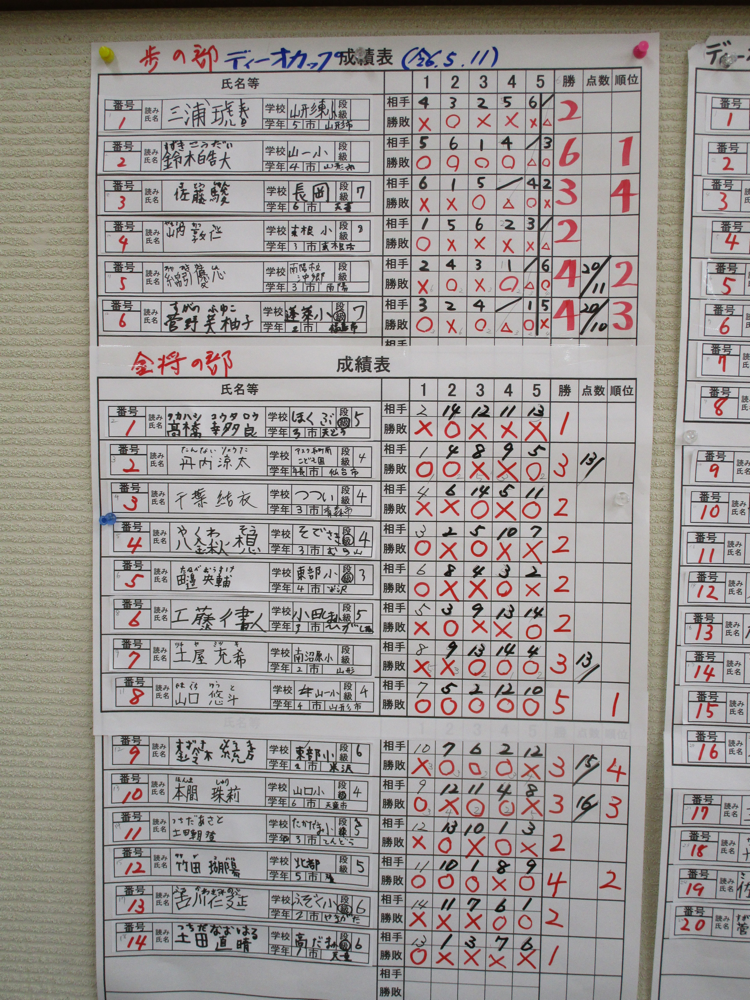 歩の部 ディーオカップ 成績表 (R6.5.11)
氏名等 1 2 3 4 5 勝 点数 順位
番号 1 読み 氏名 三浦琥 学校 山形東小 段級 学年 5 市 山形市 相手 4 3 2 5 6 2
勝敗 × ○ × × × △
番号 2 読み 氏名 すずき こうだい 鈴木皓大 学校 山一小 段級 学年 4 市 相手 5 6 1 4 / 3 6 1
勝敗 ○ ○ ○ ○ △ ○
番号 3 読み 氏名 佐藤駿 学校 長岡 段級 7 学年 6 市 天童 相手 6 1 5 / 4 2 3 4
勝敗 × × ○ △ ○ ×
番号 4 読み 氏名 学校 東根小 段級 8 学年 3 市 東根市 相手 1 5 6 2 3 / 2
勝敗 ○ × × × × △
番号 5 読み 氏名 学校 南陽市立沖郷 段級 学年 3 市 南陽 相手 2 4 3 1 / 6 4 20/11 2
勝敗 × ○ × ○ △ ○
番号 6 読み 氏名 すがの ふゆこ 菅野芙柚子 学校 蓬莱小 段級 7 学年 2 市 福島市 相手 3 2 4 / 1 5 4 20/10 3
勝敗 ○ × ○ △ ○ ×
相手
金将の部 成績表
氏名等 1 2 3 4 5 勝 点数 順位
番号 1 読み 氏名 タカハシ コウタロウ 高橋幸多良 学校 ほくぶ 段級 5 学年 3 市 天どう 相手 2 14 12 11 13 1
勝敗 × ○ × × ×
番号 2 読み 氏名 たんない りょうた 丹内涼太 学校 段級 4 学年 年長 市 仙台市 相手 1 4 8 9 5 3 13/
勝敗 ○ ○ × × ○
番号 3 読み 氏名 千葉結衣 学校 つつい 段級 4 学年 3 市 青森市 相手 4 6 14 5 11 2
勝敗 × × ○ × ○
番号 4 読み 氏名 やくわ そう 八鍬想 学校 そでさき 段級 4 学年 3 市 むら山 相手 3 2 5 10 7 2
勝敗 ○ × ○ × ×
番号 5 読み 氏名 田邉央輔 学校 東部小 段級 3 学年 4 市 米沢 相手 6 8 4 3 2 2
勝敗 ○ × × ○ ×
番号 6 読み 氏名 工藤 学校 段級 5 学年 市 相手 5 3 9 13 14 2
勝敗 × ○ × × ○
番号 7 読み 氏名 つちや こうき 土屋克希 学校 南沼原小 段級 学年 2 市 山形 相手 8 9 13 14 4 3 13/
勝敗 × × ○ ○ ○
番号 8 読み 氏名 やまぐち ゆうと 山口悠斗 学校 山一小 段級 4 学年 4 市 山形市 相手 7 5 2 12 10 5 1
勝敗 ○ ○ ○ ○ ○
氏名等 1 2 3 4 5 勝 点数 順位
番号 9 読み 氏名 鈴木 学校 東部小 段級 6 学年 2 市 米沢 相手 10 7 6 2 12 3 15/ 4
勝敗 × ○ ○ ○ ×
番号 10 読み 氏名 ほんま じゅり 本間珠莉 学校 山口小 段級 4 学年 6 市 天童市 相手 9 12 11 4 8 3 16/ 3
勝敗 ○ × ○ ○ ×
番号 11 読み 氏名 つちだ あさと 土田朝登 学校 段級 5 学年 3 市 てんどう 相手 12 13 10 1 3 2
勝敗 × ○ × ○ ×
番号 12 読み 氏名 竹田瑚陽 学校 北部 段級 5 学年 5 市 相手 11 10 1 8 9 4 2
勝敗 ○ ○ ○ × ○
番号 13 読み 氏名 吉川仁正 学校 段級 6 学年 2 市 相手 14 11 7 6 1 2
勝敗 × × × ○ ○
番号 14 読み 氏名 つちだ なおはる 土田直晴 学校 高だま 段級 6 学年 1 市 天童 相手 13 1 3 7 6 1
勝敗 ○ × × × ×
相手
勝敗
相手
ディーオ
番号 1
番号 2
番号 3
番号 4
番号 5
番号 6
番号 7
番号 8
番号 9
番号 10
番号 11
番号 12
番号 13
番号 14
番号 15
番号 16
番号 17
番号 18
番号 19
番号 20